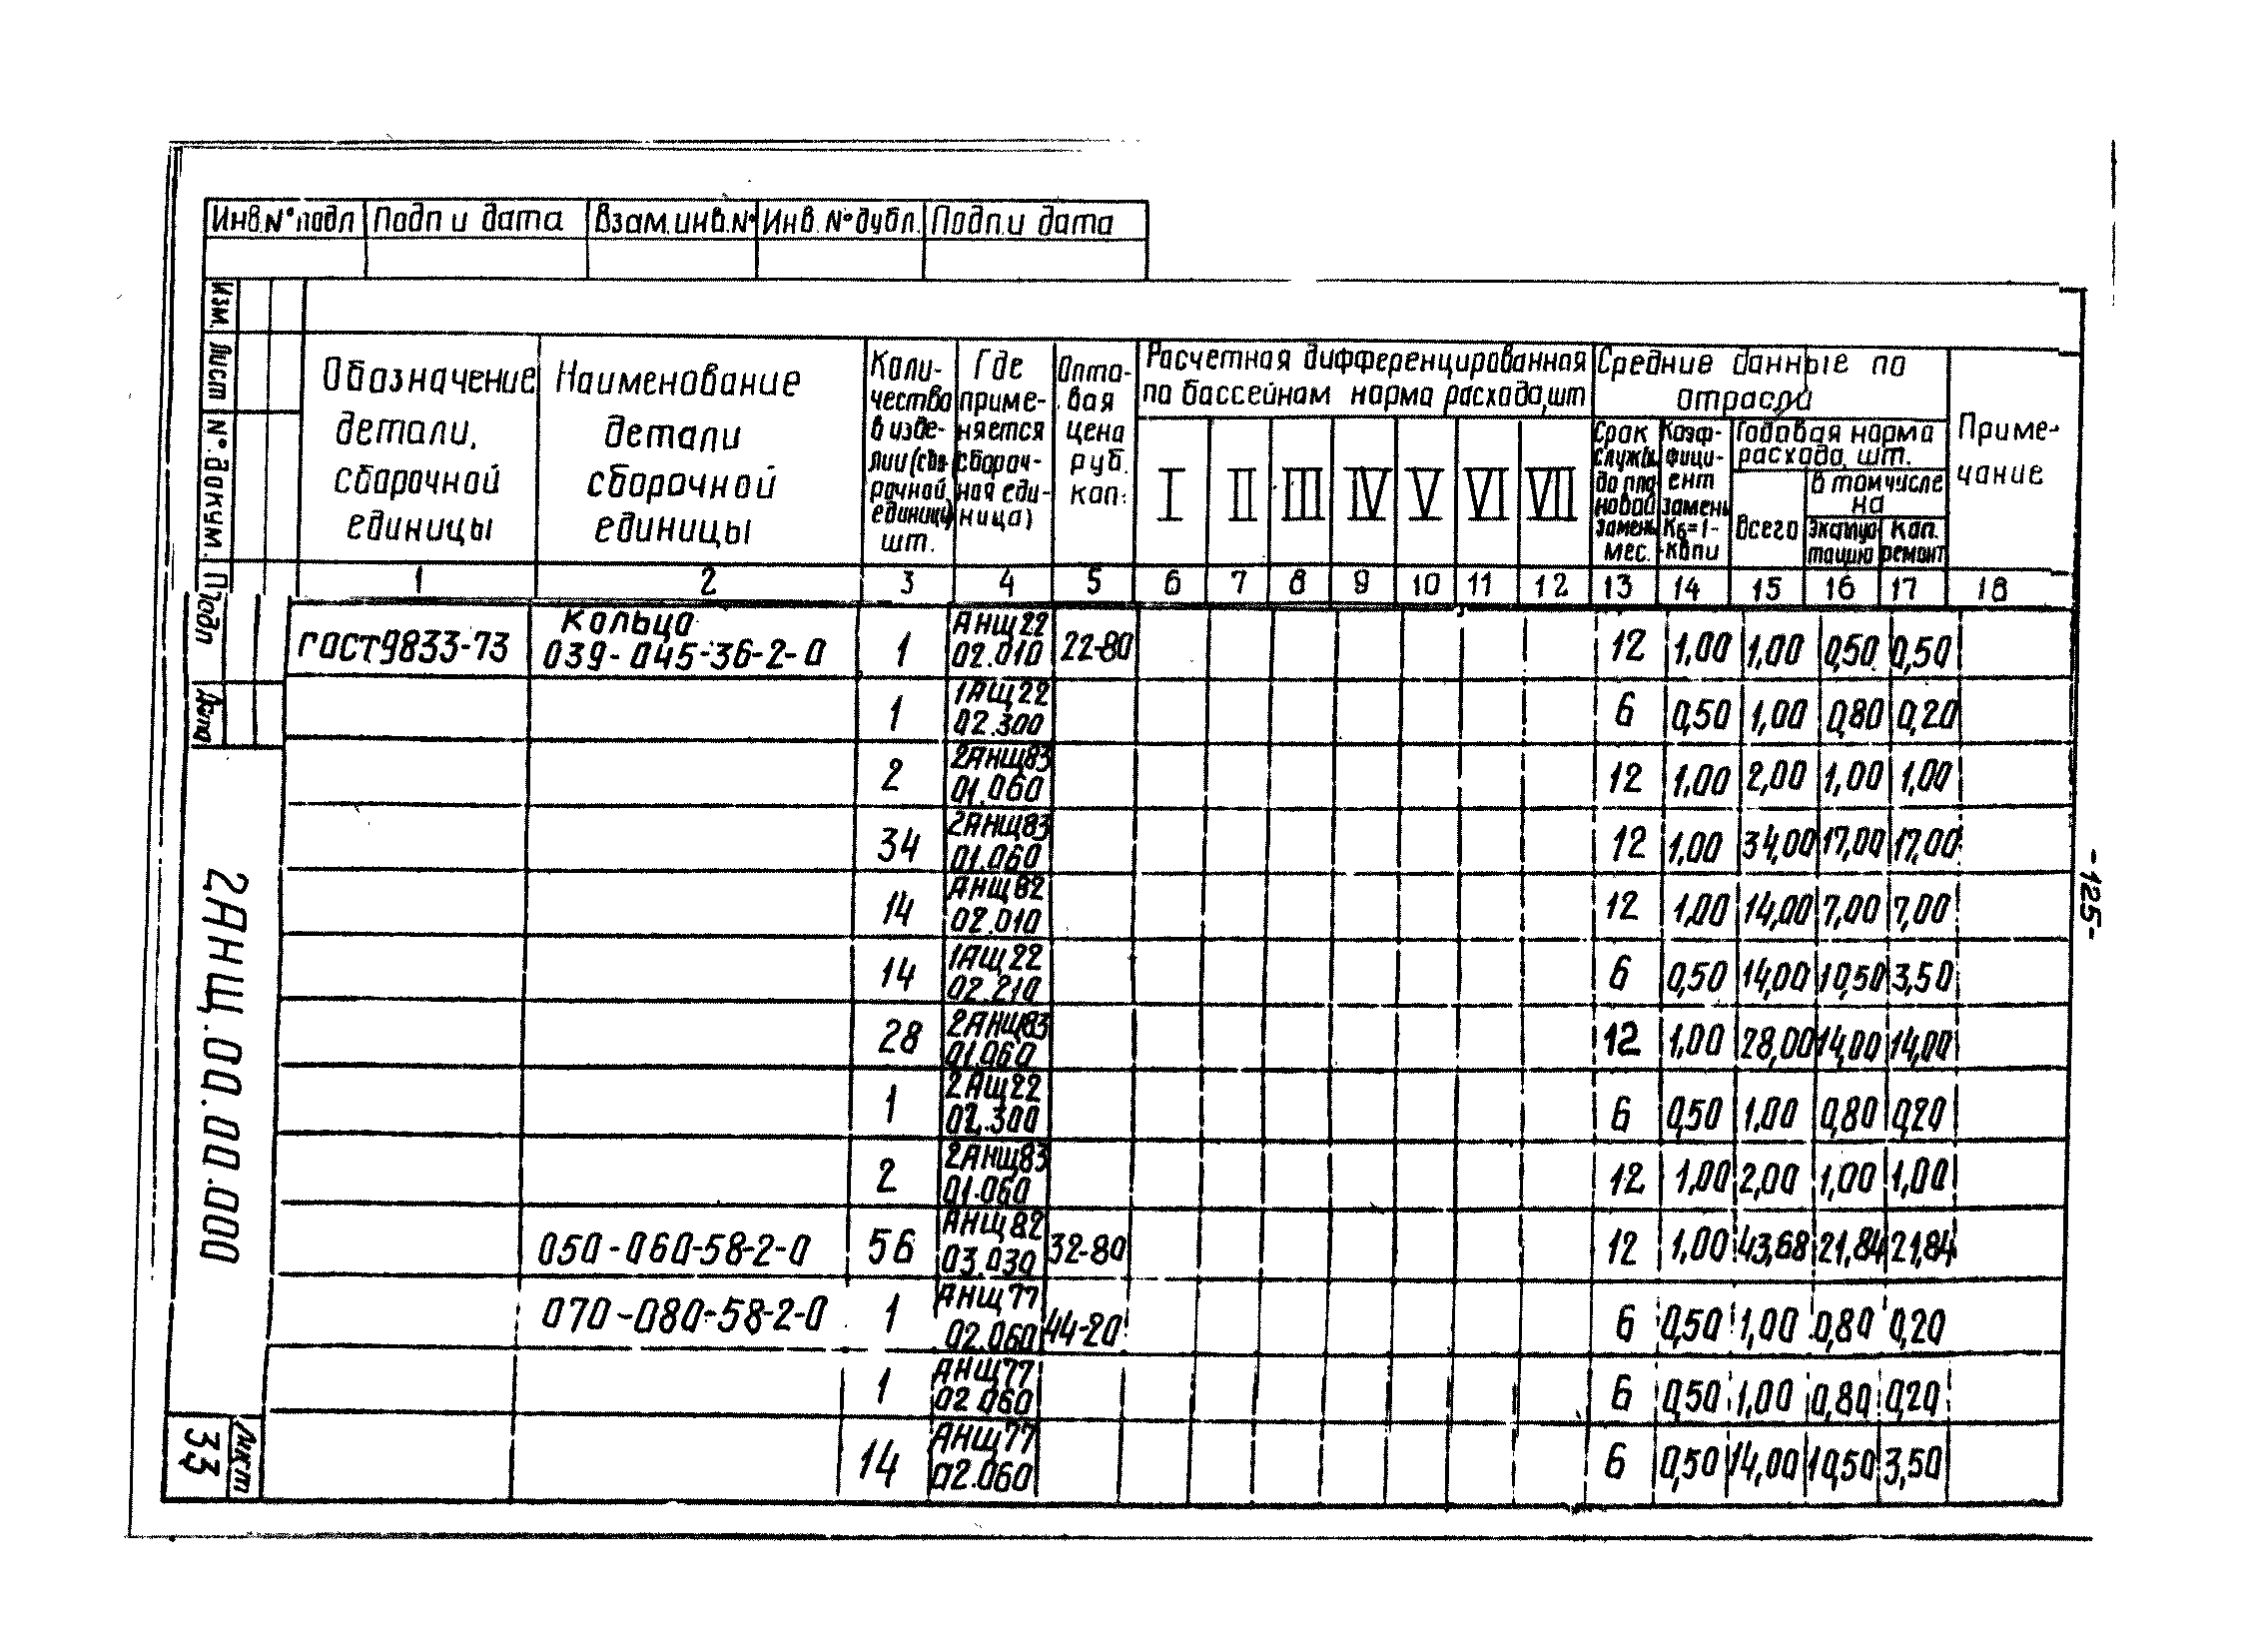 Инв.№ подл Подп и дата Взам.инв.№ Инв.№ дубл. Подп.и дата
Изм. Лист № докум. Подп Дата
Обозначение детали, сборочной единицы
Наименование детали сборочной единицы
Коли-
чество
в изде-
лии (сбо-
рочной
единицы)
шт.
Где
приме-
няется
(сбороч-
ная еди-
ница)
Опто-
вая
цена
руб.
коп.
Расчетная дифференцированная
по бассейнам норма расхода, шт
I II III IV V VI VII
Средние данные по
отрасли
Срок
службы
до пла
новой
замены
мес.
Коэф-
фици-
ент
замены
Кв=1-
-копи
Годовая норма
расхода, шт.
Всего
в том числе
на
экаплуа
тацию
кап.
ремонт
Приме-
чание
1 2 3 4 5 6 7 8 9 10 11 12 13 14 15 16 17 18
гост9833-73 Кольцо 039-045-36-2-0 1 АНЩ22 02.010 22-80 12 1,00 1,00 0,50 0,50
1 1АЩ22 02.300 6 0,50 1,00 0,80 0,20
2 2АНЩ83 01.060 12 1,00 2,00 1,00 1,00
34 2АНЩ83 01.060 12 1,00 34,00 17,00 17,00
14 АНЩ82 02.010 12 1,00 14,00 7,00 7,00
14 1АЩ22 02.210 6 0,50 14,00 10,50 3,50
28 2АНЩ83 01.060 12 1,00 28,00 14,00 14,00
1 2АЩ22 02.300 6 0,50 1,00 0,80 0,20
2 2АНЩ83 01.060 12 1,00 2,00 1,00 1,00
050-060-58-2-0 56 АНЩ82 03.030 32-80 12 1,00 43,68 21,84 21,84
070-080-58-2-0 1 АНЩ77 02.060 44-20 6 0,50 1,00 0,80 0,20
1 АНЩ77 02.060 6 0,50 1,00 0,80 0,20
14 АНЩ77 02.060 6 0,50 14,00 10,50 3,50
2АНЩ.00.00.000
Лист
33
-125-